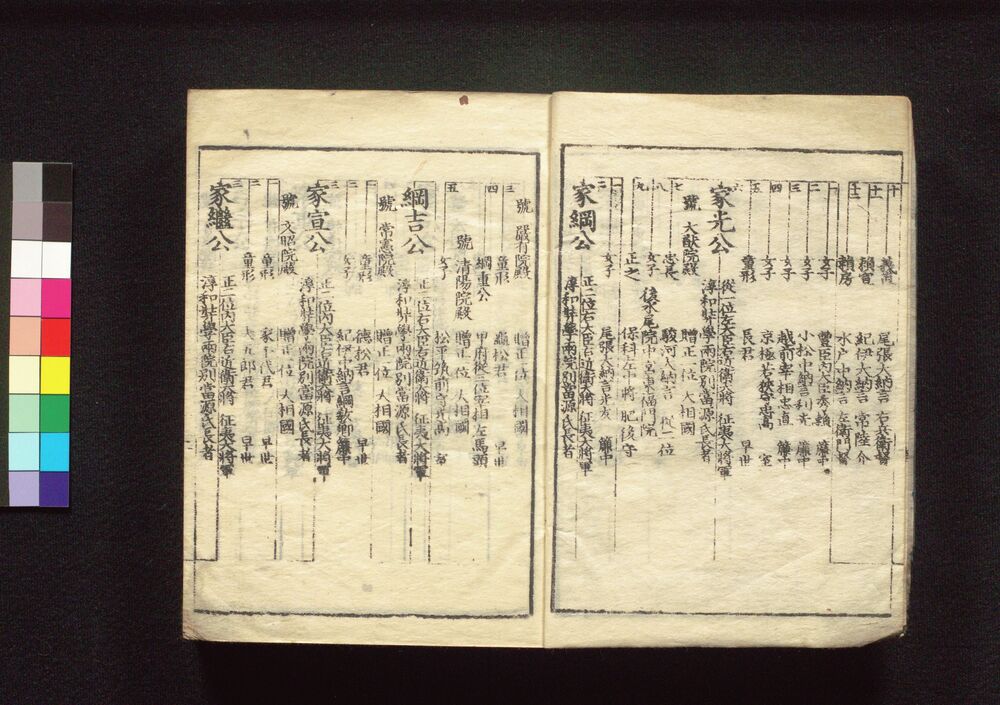 十 義直 尾張大納言 右兵衛督
十一 頼宣 紀伊大納言 常陸介
十二 頼房 水戸中納言 左衛門督
一 女子 豊臣内大臣秀頼 簾中
二 女子 小松中納言利光 簾中
三 女子 越前宰相忠直 簾中
四 女子 京極若狭守忠高 室
五 童形 長君 早世
六 家光公 從一位左大臣左近衛大將 征夷大將軍
淳和奨學兩院別當源氏長者
號 大猷院殿 贈正一位 大相國
七 忠長 駿河大納言 從二位
八 女子 後水尾院中宮東福門院
九 正之 保科左中將 肥後守
一 女子 尾張大納言光友 簾中
二 家綱公 正二位右大臣右近衛大將 征夷大將軍
淳和奨學兩院別當源氏長者
號 嚴有院殿 贈正一位 大相國
三 童形 龜松君 早世
四 綱重公 甲府從三位宰相左馬頭
號 清陽院殿 贈正一位 大相國
女子 松平筑前守光高 室
五 綱吉公 正二位右大臣右近衛大將 征夷大將軍
淳和奨學兩院別當源氏長者
號 常憲院殿 贈正一位 大相國
一 童形 德松君 早世
二 女子 紀伊中納言綱教卿 簾中
三 家宣公 正二位内大臣右近衛大將 征夷大將軍
淳和奨學兩院別當源氏長者
號 文昭院殿 贈正一位 大相國
一 童形 家千代君 早世
二 童形 大五郎君 早世
三 家繼公 正二位内大臣右近衛大將 征夷大將軍
淳和奨學兩院別當源氏長者